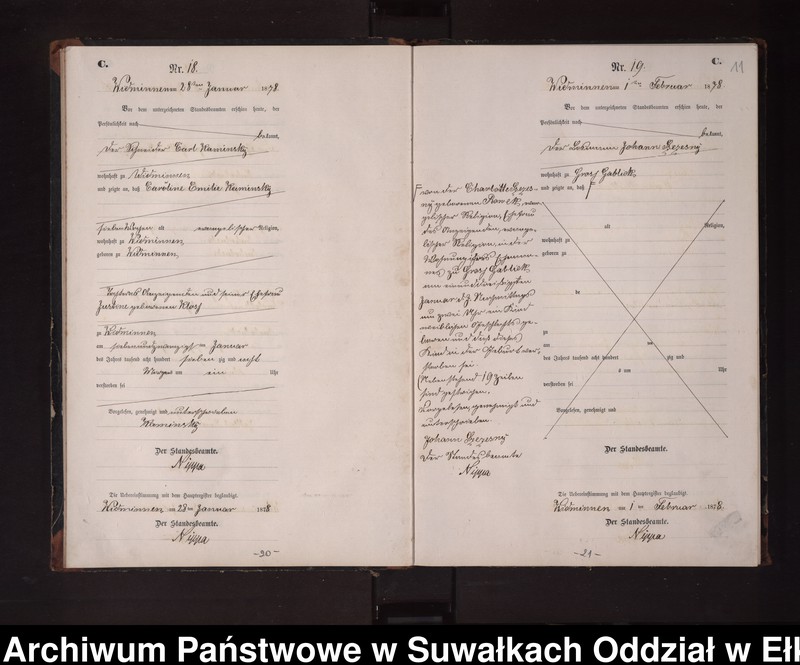 C.
Nr. 18.
Widminnen am 28ten Januar 1878.
Vor dem unterzeichneten Standesbeamten erschien heute, der
Persönlichkeit nach
bekannt,
der Schneider Carl Kaminsky
wohnhaft zu Widminnen
und zeigte an, daß Caroline Emilie Kaminsky
sieben Wochen alt evangelischer Religion,
wohnhaft zu Widminnen
geboren zu Widminnen,
Tochter des Anzeigenden und seiner Ehefrau
Justine geborenen
zu Widminnen
am siebenundzwanzigsten Januar
des Jahres tausend acht hundert siebenzig und acht
Morgens um ein Uhr
verstorben sei
Vorgelesen, genehmigt und unterschrieben
Kaminsky
Der Standesbeamte.
Nippa
Die Uebereinstimmung mit dem Hauptregister beglaubigt.
Widminnen am 28ten Januar 1878
Der Standesbeamte.
Nippa
-20-
C.
11
Nr. 19.
Widminnen am 1ten Februar 1878.
Vor dem unterzeichneten Standesbeamten erschien heute, der
Persönlichkeit nach
bekannt,
der Johann
wohnhaft zu Gross Gablick
und zeigte an, daß
von der Charlotte
geborenen evan-
gelischer Religion, Ehefrau
des Anzeigenden, evange-
lischer Religion, in der
Wohnung ihres Eheman-
nes zu Gross Gablick
am einunddreißigsten
Januar d. J. Nachmittags
um zwei Uhr ein Kind
weiblichen Geschlechts ge-
boren und daß dieses
Kind in der Geburt ver-
storben sei.
(Nebenstehend 19 Zeilen
sind gestrichen.
Vorgelesen, genehmigt und
unterschrieben
Johann
Der Standesbeamte
Nippa
alt Religion,
wohnhaft zu
geboren zu
zu
am
des Jahres tausend acht hundert zig und
um Uhr
verstorben sei
Vorgelesen, genehmigt und
Der Standesbeamte.
Die Uebereinstimmung mit dem Hauptregister beglaubigt.
Widminnen am 1ten Februar 1878.
Der Standesbeamte.
Nippa
-21-
Archiwum Państwowe w Suwałkach Oddział w Eł